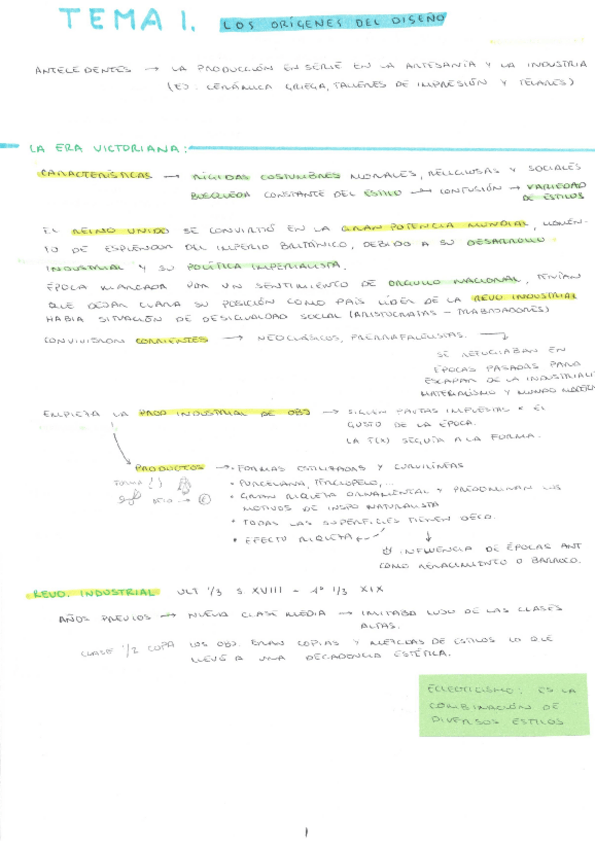 TEMA 1. LOS ORÍGENES DEL DISEÑO
ANTECEDENTES → LA PRODUCCIÓN EN SERIE EN LA ARTESANÍA Y LA INDUSTRIA
(EJ. CERÁMICA GRIEGA, TALLERES DE IMPRESIÓN Y TELARES)
LA ERA VICTORIANA:
CARACTERÍSTICAS → RÍGIDAS COSTUMBRES MORALES, RELIGIOSAS Y SOCIALES
BÚSQUEDA CONSTANTE DEL ESTILO → CONFUSIÓN → VARIEDAD
DE ESTILOS
EL REINO UNIDO SE CONVIRTIÓ EN LA GRAN POTENCIA MUNDIAL, MOMEN-
TO DE ESPLENDOR DEL IMPERIO BRITÁNICO, DEBIDO A SU DESARROLLO
INDUSTRIAL Y SU POLÍTICA IMPERIALISTA.
ÉPOCA MARCADA POR UN SENTIMIENTO DE ORGULLO NACIONAL, TENÍAN
QUE DEJAR CLARA SU POSICIÓN COMO PAÍS LÍDER DE LA REVO INDUSTRIAL
HABÍA SITUACIÓN DE DESIGUALDAD SOCIAL (ARISTOCRATAS - TRABAJADORES)
CONVIVIERON CORRIENTES → NEOCLÁSICOS, PRERRAFAELISTAS.
SE REFUGIABAN EN
ÉPOCAS PASADAS PARA
ESCAPAR DE LA INDUSTRIALI
MATERIALISMO Y MUNDO
EMPIEZA LA PROD INDUSTRIAL DE OBJ → SIGUEN PAUTAS IMPUESTAS X EL
GUSTO DE LA ÉPOCA.
LA F(X) SEGUÍA A LA FORMA.
PRODUCTOS → • FORMAS ESTILIZADAS Y CURVILÍNEAS
• PORCELANA, TERCIOPELO,...
• GRAN RIQUEZA ORNAMENTAL Y PREDOMINAN LOS
MOTIVOS DE INSPO NATURALISTA
• TODAS LAS SUPERFICIES TIENEN DECO.
• EFECTO RIQUEZA
INFLUENCIA DE ÉPOCAS ANT
COMO RENACIMIENTO O BARROCO.
REVO. INDUSTRIAL ULT 1/3 S XVIII - 1º 1/3 XIX
AÑOS PREVIOS → NUEVA CLASE MEDIA → IMITABA LUJO DE LAS CLASES
ALTAS.
CLASE 1/2 COPIA LOS OBJ. ERAN COPIAS Y MEZCLAS DE ESTILOS LO QUE
LLEVÓ A UNA DECADENCIA ESTÉTICA.
ECLECTICISMO: ES LA
COMBINACIÓN DE
DIVERSOS ESTILOS
1